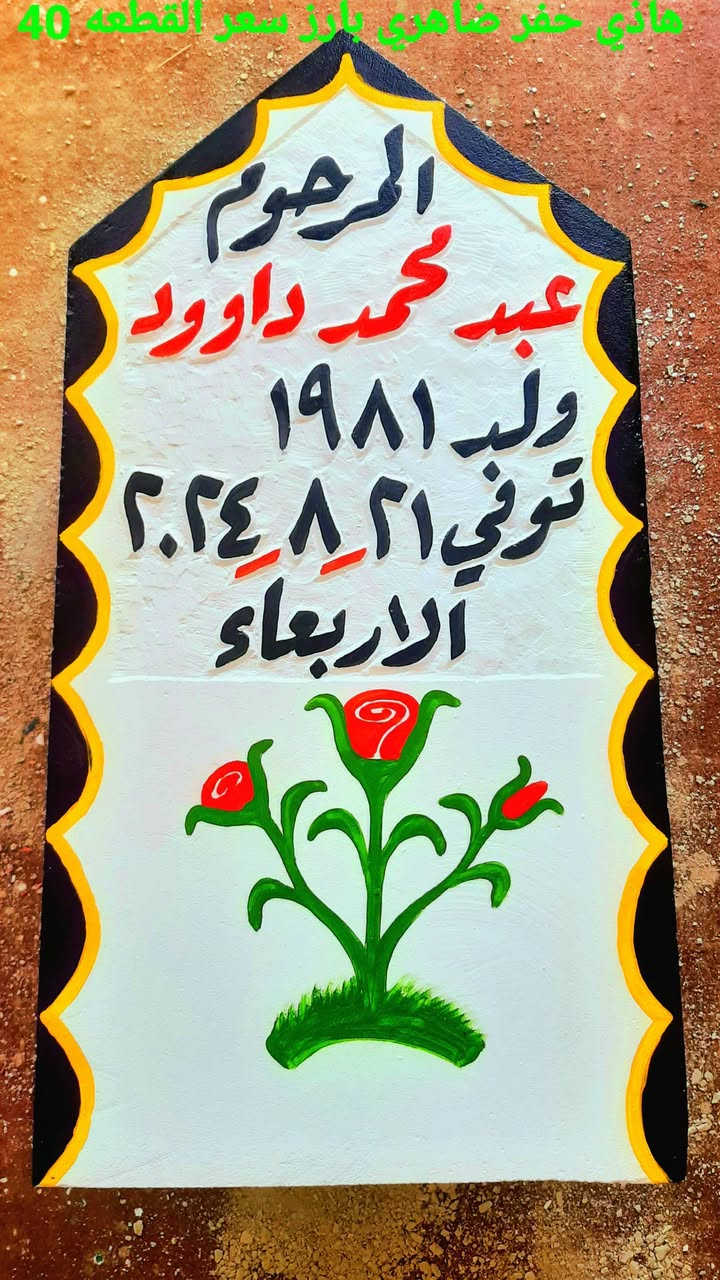 هاذي حفر ضاهري بارز سعر القطعه 40
المرحوم
عبد محمد داوود
ولد ١٩٨١
توفي ٢١_٨_٢٠٢٤
الاربعاء